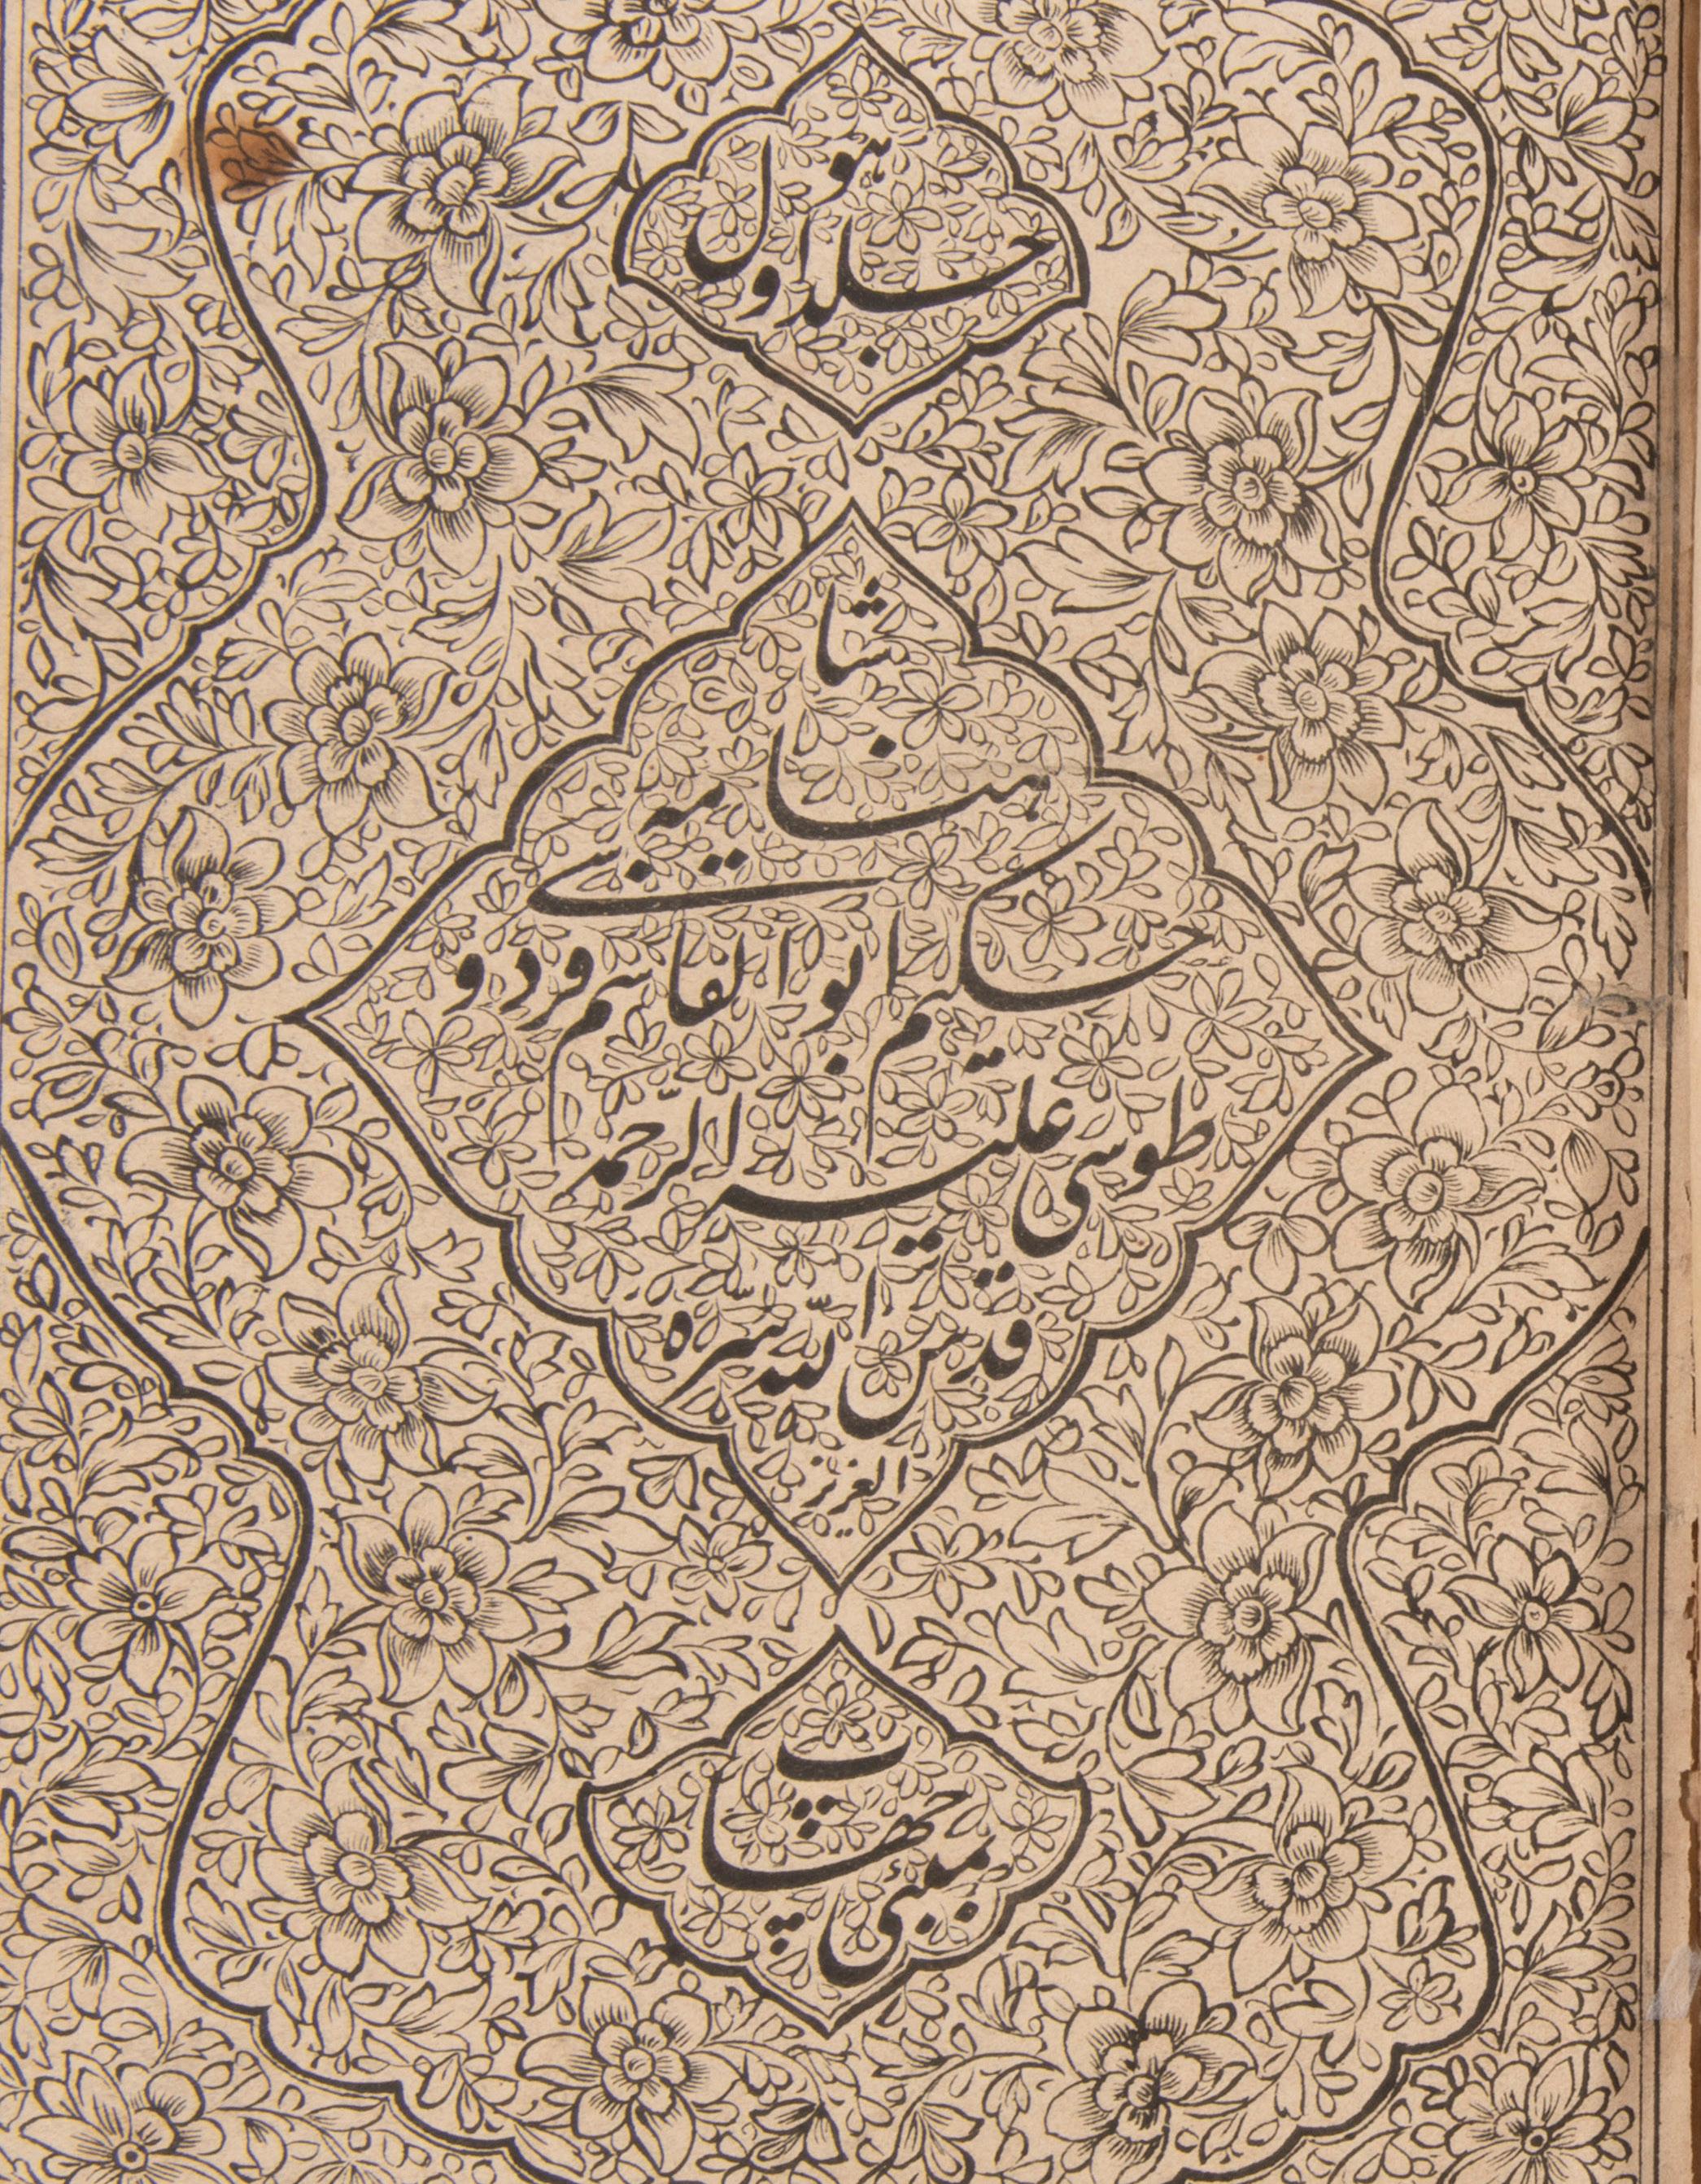 هو
جلد اول
شا
هنامه
حکیم ابوالقاسم فردوسی
طوسی علیه الرحمه
قدس الله سره
العزیز
بمبئی چهاپ